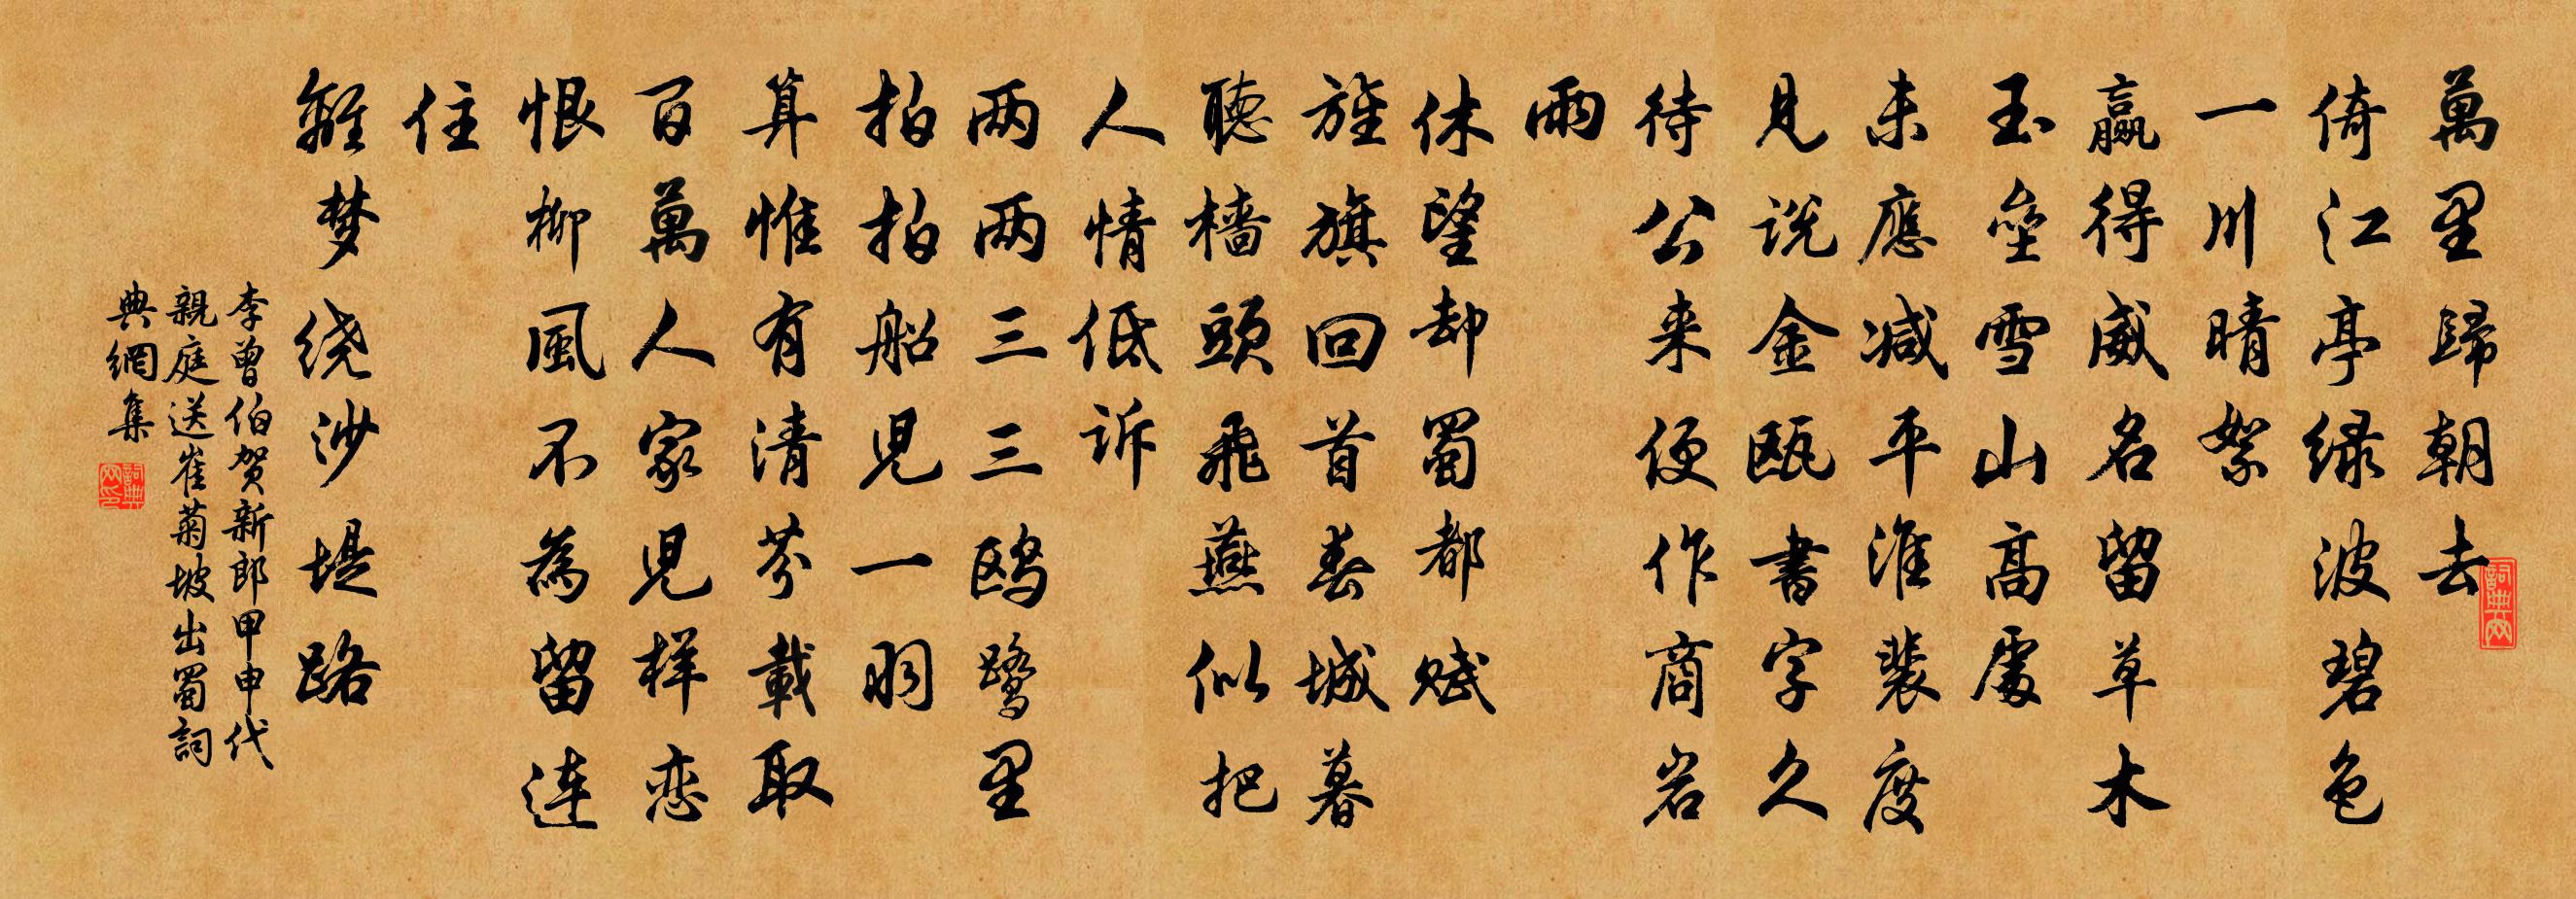 萬里歸朝去
倚江亭绿波碧色
一川晴絮
赢得威名留草木
玉壘雪山高處
未應减平淮裴度
見说金瓯書字久
待公来便作商岩
雨
休望却蜀都赋
旌旗回首春城暮
聴檣頭飛燕似把
人情低诉
两两三三鸥鹭里
拍拍船児一羽
算惟有清芬載取
百萬人家児样恋
恨柳風不為留連
住
離梦绕沙堤路
李曾伯贺新郎甲申代
親庭送崔菊坡出蜀詞
典網集
詞典网
詞典网印